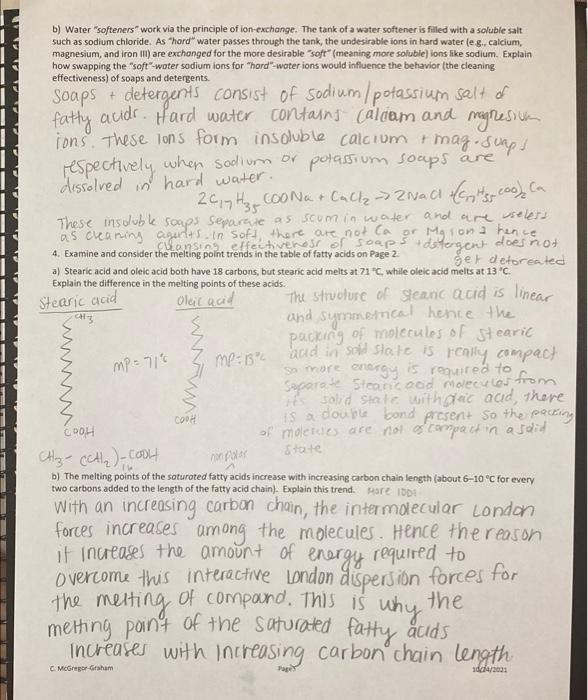 b) Water "softeners" work via the principle of ion-exchange. The tank of a water softener is filled with a soluble salt
such as sodium chloride. As "hard" water passes through the tank, the undesirable ions in hard water (e.g., calcium,
magnesium, and iron III) are exchanged for the more desirable "soft" (meaning more soluble) ions like sodium. Explain
how swapping the "soft"-water sodium ions for "hard"-water ions would influence the behavior (the cleaning
effectiveness) of soaps and detergents.
Soaps + detergents consist of sodium/potassium salt of
fatty acids. Hard water contains calciam and magnesium
ions. These ions form insoluble calcium + mag. soaps
respectively when sodium or potassium soaps are
dissolved in hard water.
2C17H35COONa + CaCl2 → 2NaCl + (C17H35COO)2Ca
These insoluble soaps separate as scum in water and are useless
as cleaning agents. In soft, there are not Ca or Mg ions hence
cleansing effectiveness of soaps + detergent does not
get detoreated
4. Examine and consider the melting point trends in the table of fatty acids on Page 2.
a) Stearic acid and oleic acid both have 18 carbons, but stearic acid melts at 71 °C, while oleic acid melts at 13 °C.
Explain the difference in the melting points of these acids.
Stearic acid
CH3
mp = 71°C
COOH
CH3 - (CH2)16 - COOH
Oleic acid
mp = 13°C
COOH
The structure of stearic acid is linear
and symmetrical hence the
packing of molecules of stearic
acid in solid state is really compact
so more energy is required to
separate stearic acid molecules from
it's solid state with oleic acid, there
is a double bond present so the packing
of molecules are not as compact in a solid
state
nonpolar
b) The melting points of the saturated fatty acids increase with increasing carbon chain length (about 6–10 °C for every
two carbons added to the length of the fatty acid chain). Explain this trend.
More
With an increasing carbon chain, the intermolecular London
forces increases among the molecules. Hence the reason
it increases the amount of energy required to
overcome this interactive London dispersion forces for
the melting of compound. This is why the
melting point of the saturated fatty acids
increases with increasing carbon chain length
C. McGregor-Graham
Page 5
10/24/2021